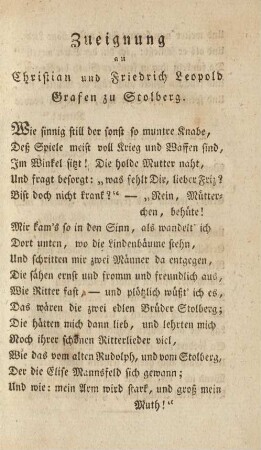 Zueignung
an
Christian und Friedrich Leopold
Grafen zu Stolberg.
Wie sinnig still der sonst so muntre Knabe,
Deß Spiele meist voll Krieg und Waffen sind,
Im Winkel sitzt! Die holde Mutter naht,
Und fragt besorgt: „was fehlt Dir, lieber Fritz?
Bist doch nicht krank?“ — „Nein, Mütter-
chen, behüte!
Mir kam's so in den Sinn, als wandelt' ich
Dort unten, wo die Lindenbäume stehn,
Und schritten mir zwei Männer da entgegen,
Die sähen ernst und fromm und freundlich aus,
Wie Ritter fast — und plötzlich wüßt' ich es,
Das wären die zwei edlen Brüder Stolberg;
Die hätten mich dann lieb, und lehrten mich
Noch ihrer schönen Ritterlieder viel,
Wie das vom alten Rudolph, und vom Stolberg,
Der die Elise Mannsfeld sich gewann;
Und wie: mein Arm wird stark, und groß mein
Muth!“